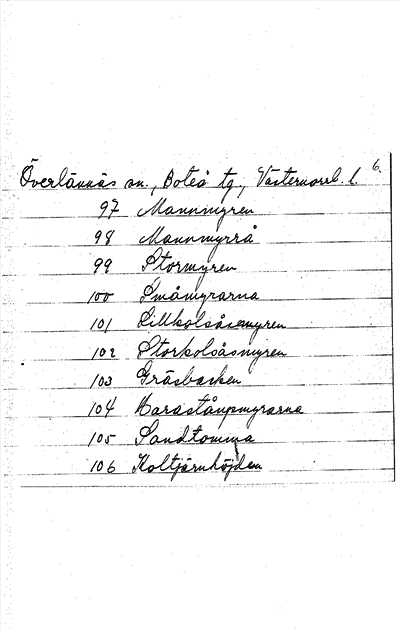 Överlännäs sn., Boteå tg., Västernorrl. l. 6.
97 Mannmyren
98 Mannmyrrå
99 Stormyren
100 Småmyrarna
101 Lillkolsåsmyren
102 Storkolsåsmyren
103 Gräsbacken
104 Harastånpmyrarna
105 Sandtomma
106 Koltjärnhöjden